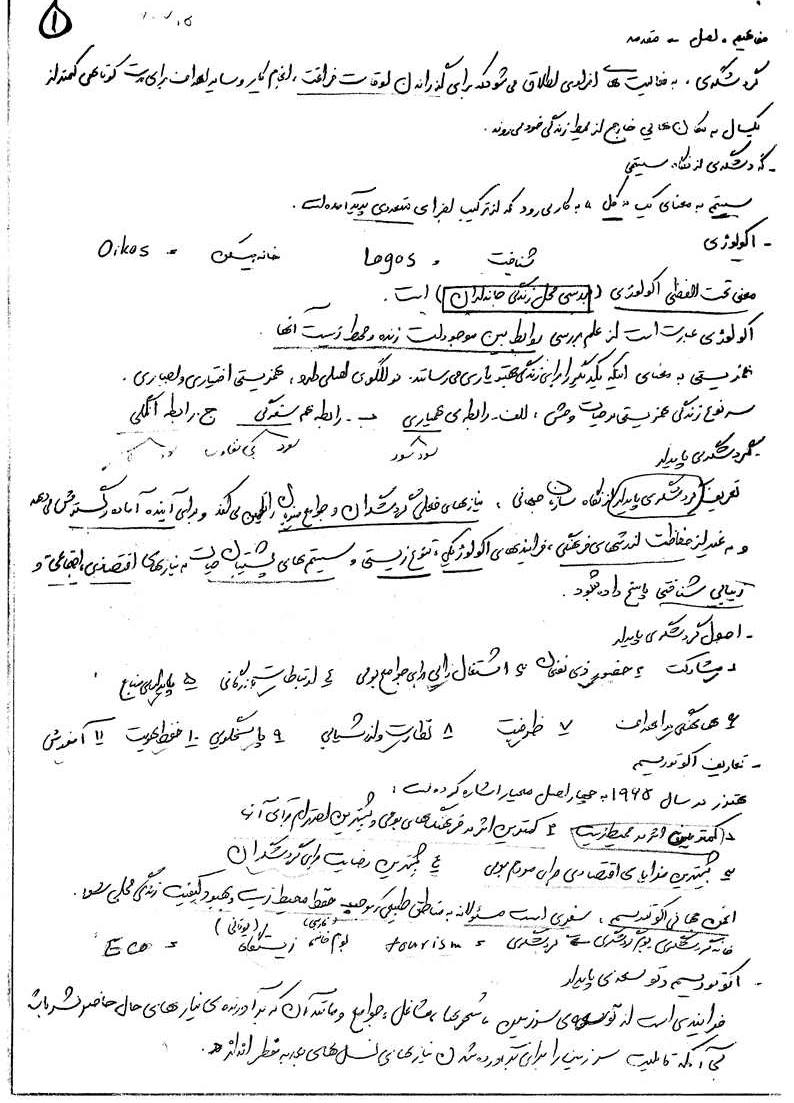 ۱
مفاهیم، اصل - مقدمه
گردشگری، به فعالیت های افرادی اطلاق می شود که برای گذراندن اوقات فراغت، انجام کار و سایر اهداف برای مدت کوتاهی کمتر از
یکسال به مکان هایی خارج از محیط زندگی خود می روند.
- گردشگری از نگاه سیستمی
سیستم به معنای یک «کل» به کار می رود که از ترکیب اجزای متعددی پدید آمده است.
- اکولوژی
شناخت و Logos خانه، مسکن = Oikos
معنی تحت اللفظی اکولوژی (بررسی محل زندگی جانداران) است.
اکولوژی عبارت است از علم بررسی روابط بین موجودات زنده و محیط زیست آنها.
همزیستی به معنای اینکه یکدیگر را برای زندگی بهتر یاری می رسانند. دو الگوی اصلی دارد، همزیستی اختیاری و اجباری.
سه نوع زندگی همزیستی در حیات وحش، الف - رابطه ی همیاری ب - رابطه هم سفرگی ج. رابطه انگلی
سود سود سود بی تفاوت
- گردشگری پایدار
تعریف گردشگری پایدار از نگاه سازمان جهانی، نیازهای فعلی گردشگران و جوامع میزبان را تامین می کند و برای آینده آماده و گسترش می دهد
و به غیر از حفاظت ارزشهای فرهنگی، فرایندهای اکولوژیکی، تنوع زیستی و سیستم های پشتیبان حیات به نیازهای اقتصادی، اجتماعی و
زیبایی شناختی پاسخ داده شود.
- اصول گردشگری پایدار
۱ مشارکت ۲ حضور ذی نفعان ۳ اشتغال زایی برای جوامع بومی ۴ ارتباطات بازرگانی ۵ پایداری منابع
۶ هماهنگی در اهداف ۷ ظرفیت ۸ نظارت و ارزشیابی ۹ پاسخگویی ۱۰ حفظ هویت ۱۱ آموزش
- تعاریف اکوتوریسم
هتزر در سال ۱۹۶۵ به چهار اصل معیار اشاره کرده است:
۱ کمترین اثر در محیط زیست ۲ کمترین اثر در فرهنگ های بومی و بیشترین احترام برای آن
۳ بیشترین مزایای اقتصادی برای مردم بومی ۴ بیشترین رضایت برای گردشگران
انجمن جهانی اکوتوریسم، سفری است مسئولانه به مناطق طبیعی که موجب حفظ محیط زیست و بهبود کیفیت زندگی محلی شود.
بوم گردشگری گردشگری = tourism (فارسی) بوم خانه زیستگاه (یونانی) = Eco
- اکوتوریسم و توسعه ی پایدار
فرایندی است از توسعه ی سرزمین، شهرها، مشاغل، جوامع و مانند آن که برآورنده ی نیازهای حال حاضر بشر باشد
بی آنکه قابلیت سرزمین را برای برآورده شدن نیازهای نسل های بعد به خطر اندازد.